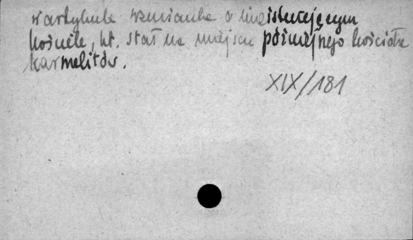 w artykule wzmianka o nieistniejącym
kościele, kt. stał na miejscu późniejszego kościoła
karmelitów.
XIX/181